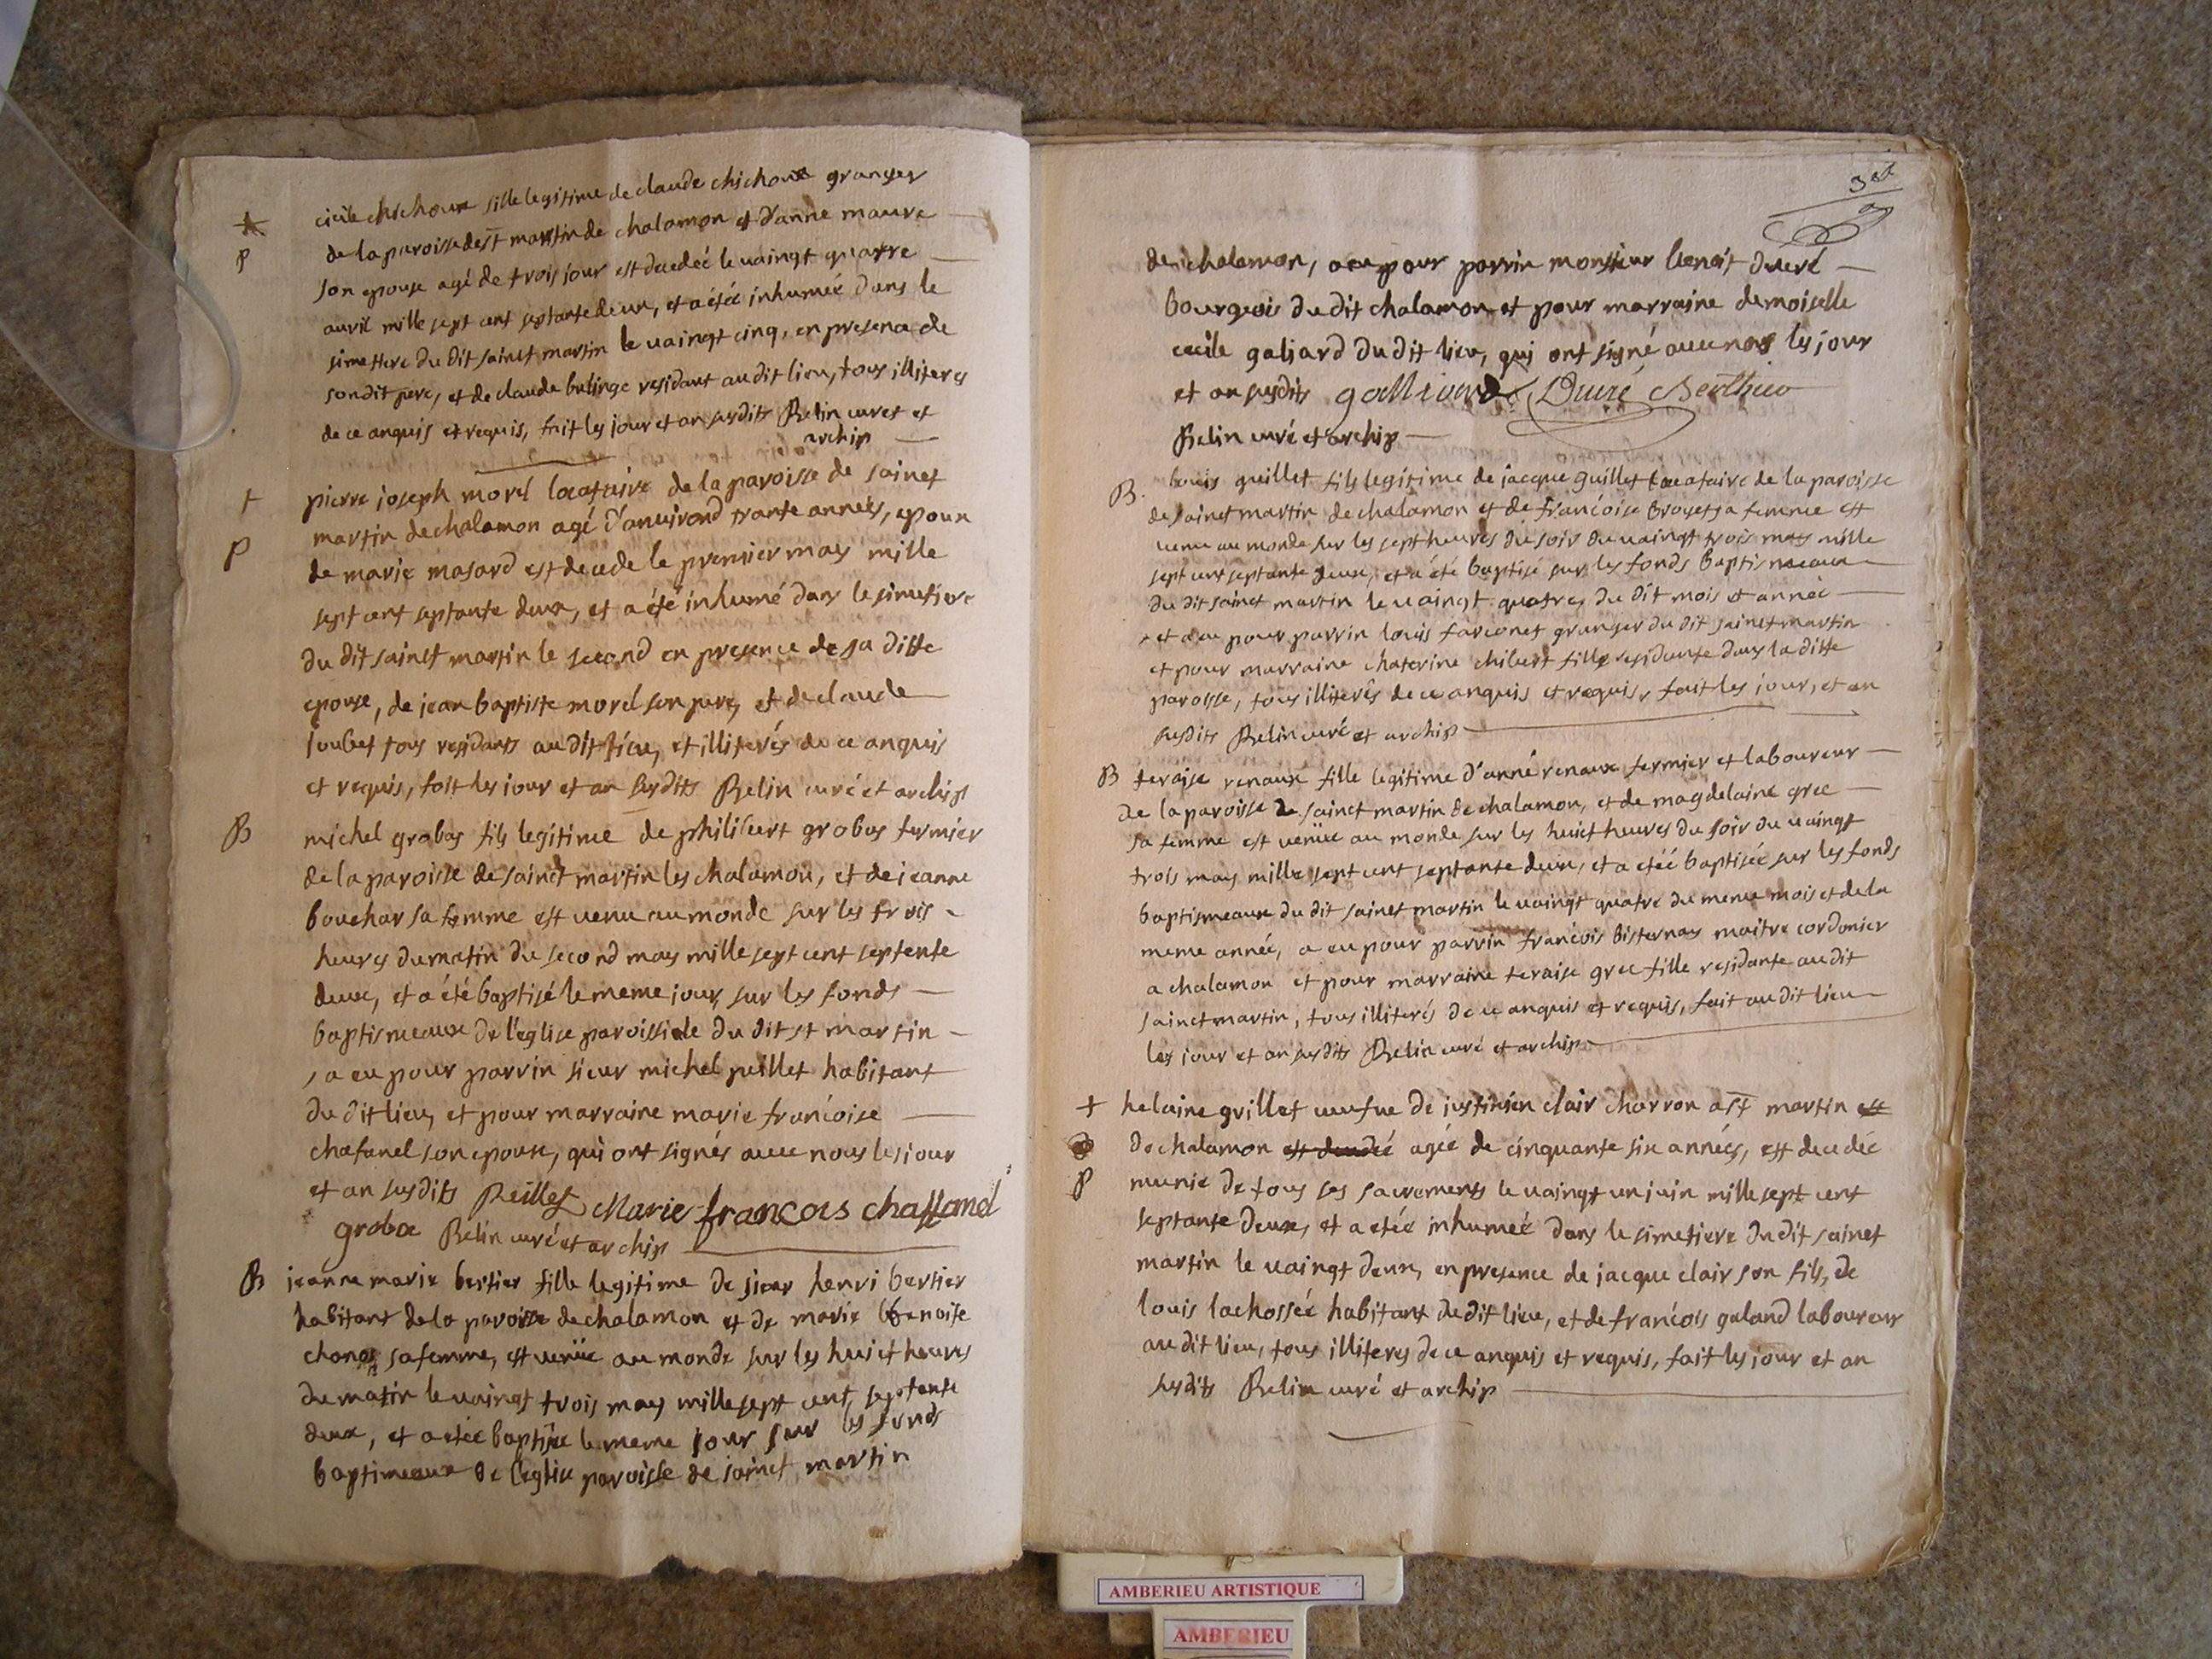 cicile chichoux fille legitime de claude chichoux granger
de la paroisse de st martin de chalamon et d'anne maure
son epouse agé de trois jour est decedeé le vaingt quatre
avril mille sept cent septante deux, et a étéé inhumeé dans le
simettere du dit sainct martin le vaingt cinq, en presence de
son dit pere, et de claude bulinge residant au dit lieu, tous illiteres
de ce anquis et requis, fait les jour et an susdits Relin curet et
archip
+
P
pierre joseph morel locataire de la paroisse de sainct
martin de chalamon agé d'anvirond trante anneés, epoux
de marie masard est decede le premier may mille
sept cent septante deux, et a été inhumé dans le simetiere
du dit sainct martin le second en presence de sa ditte
epouse, de jean baptiste morel son pere, et de claude
joubet tous residants au dit lieu, et illiterés de ce anquis
et requis, fait les jour et an susdits Relin curé et archip
B
michel grobas fils legitime de philibert grobas fermier
de la paroisse de sainct martin les chalamon, et de jeanne
bouchar sa femme est venu au monde sur les trois
heures du matin du second may mille sept cent septente
deux, et a été baptisé le meme jour sur les fonds
baptismeaux de l'eglise paroissiele du dit st martin
, a eu pour parrin sieur michel peillet habitant
du dit lieu, et pour marraine marie francoise
chafanel son epouse, qui ont signés avec nous les jour
et an susdits Peillet Marie francois chaffanel
groba Relin curé et archip
B
jeanne marie bertier fille legitime de sieur henri bertier
habitant de la paroisse de chalamon et de marie benoite
sa femme, est venüe au monde sur les huict heures
du matin le vaingt trois may mille sept cent septente
deux, et a etéé baptisée le meme jour sur les fonds
baptimeaux de l'eglise paroisse de sainct martin
3
de chalamon, a eu pour parrin monsieur benoit duvré
bourgeois du dit chalamon et pour marraine demoiselle
cecile galjard du dit lieu, qui ont signé avec nous les jour
et an susdits galliard Duvré Berthier
Relin curé et archip
B.
louis guillet fils legitime de jacque guillet locataire de la paroisse
de sainct martin de chalamon et de francoise broyet sa femme est
venu au monde sur les sept heures du soir du vaingt trois may mille
sept cent septante deux, et a été baptisé sur les fonds baptismeaux
du dit sainct martin le vaingt quatre, du dit mois et anneé
et a eu pour parrin louis farconet granger du dit sainct martin
et pour marraine chaterine chibert fille residante dans la ditte
paroisse, tous illiterés de ce anquis et requis, fait les jour, et an
susdits Relin curé et archip
B
teraise renaux fille legitime d'anné renaux fermier et laboureur
de la paroisse de sainct martin de chalamon, et de magdelaine grec
sa femme est venüe au monde sur les huict heures du soir du vaingt
trois may mille sept cent septante deux, et a etéé baptiseé sur les fonds
baptismeaux du dit sainct martin le vaingt quatre du meme mois et de la
meme anneé, a eu pour parrin francois bisternay maitre cordonier
a chalamon et pour marraine teraise grec fille residante au dit
sainct martin, tous illiterés de ce anquis et requis, fait au dit lieu
les jour et an susdits Relin curé et archip
+
P
helaine grillet veufve de justinien clair charron a st martin est
de chalamon est decedeé ageé de cinquante six anneés, est decedeé
munie de tous ses sacrements le vaingt un juin mille sept cent
septante deux, et a etéé inhumeé dans le simetiere du dit sainct
martin le vaingt deux, en presence de jacque clair son fils, de
louis lachosseé habitant du dit lieu, et de francois galand laboureur
au dit lieu, tous illiteres de ce anquis et requis, fait les jour et an
susdits Relin curé et archip
AMBERIEU ARTISTIQUE
AMBERIEU